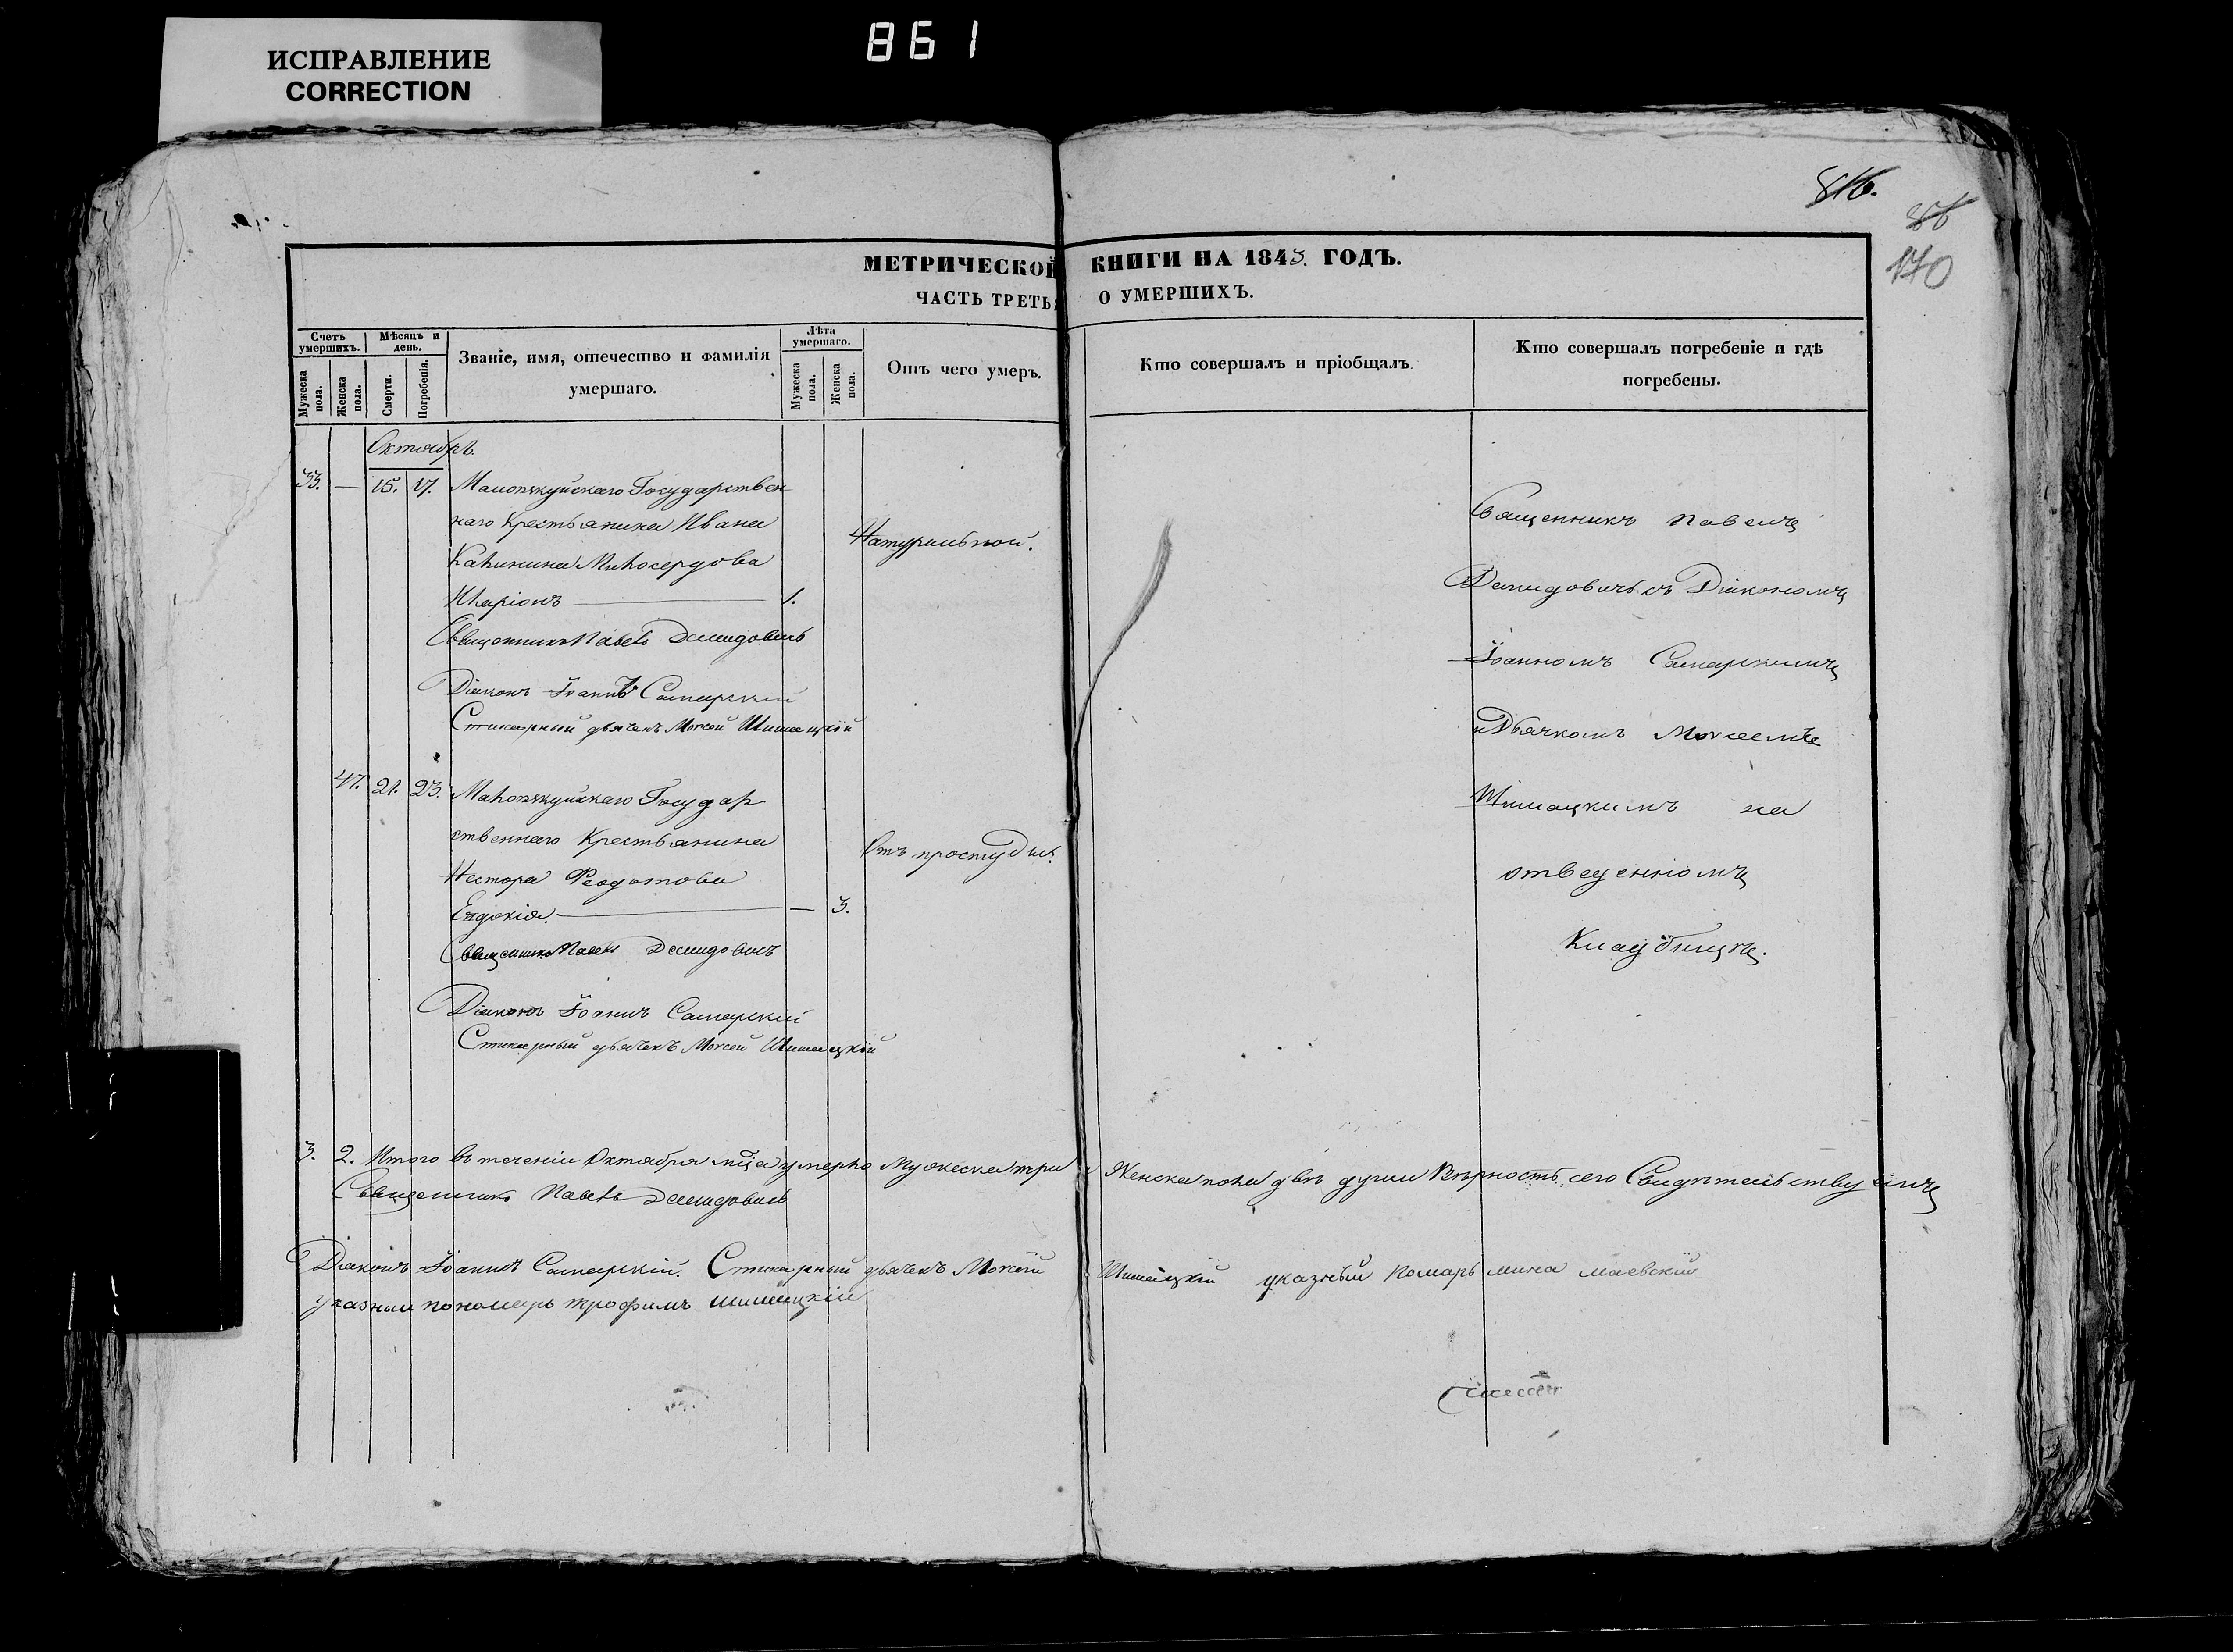 ИСПРАВЛЕНИЕ
CORRECTION
861
816.
86
170
МЕТРИЧЕСКОЙ КНИГИ НА 1843. ГОДЪ.
ЧАСТЬ ТРЕТЬЯ О УМЕРШИХЪ.
Счетъ умершихъ.
Мѣсяцъ и день.
Званіе, имя, отечество и фамилія умершаго.
Лѣта умершаго.
Отъ чего умеръ.
Кто совершалъ и пріобщалъ.
Кто совершалъ погребеніе и гдѣ погребены.
Мужеска пола.
Женска пола.
Смерти.
Погребенія.
Мужеска пола.
Женска пола.
Октябрь.
33. — 15. 17. Государствен
наго Крестьянина Ивана
Калинина Милосердова
Иларіонъ — 1.
Натуральной.
Священникъ Павелъ Демидовичь
Діаконъ Іоаннъ Самарскій
Стихарный дьячекъ Моисей Шишацкій
47. 21. 23. Государ
ственнаго Крестьянина
Нестора Феодотова
Евдокія. — — 3.
Отъ простуды.
Священникъ Павелъ Демидовичъ
Діаконъ Іоаннъ Самарскій
Стихарный дьячекъ Моисей Шишацкій
Священникъ Павелъ
Демидовичь съ Діакономъ
Іоанномъ Самарскимъ
и Дьячкомъ Моисеемъ
Шишацкимъ на
отведенномъ
Кладбищѣ.
3. 2. Итого въ теченіи Октября мца умерло Мужеска три и Женска пола двѣ души Вѣрность сего Свидѣтельствуемъ
Священникъ Павелъ Демидовичь
Діаконъ Іоаннъ Самарскій. Стихарный дьячекъ Моисей Шишацкій указный помарь мина маевскій
указный пономарь трофимъ шишацкій